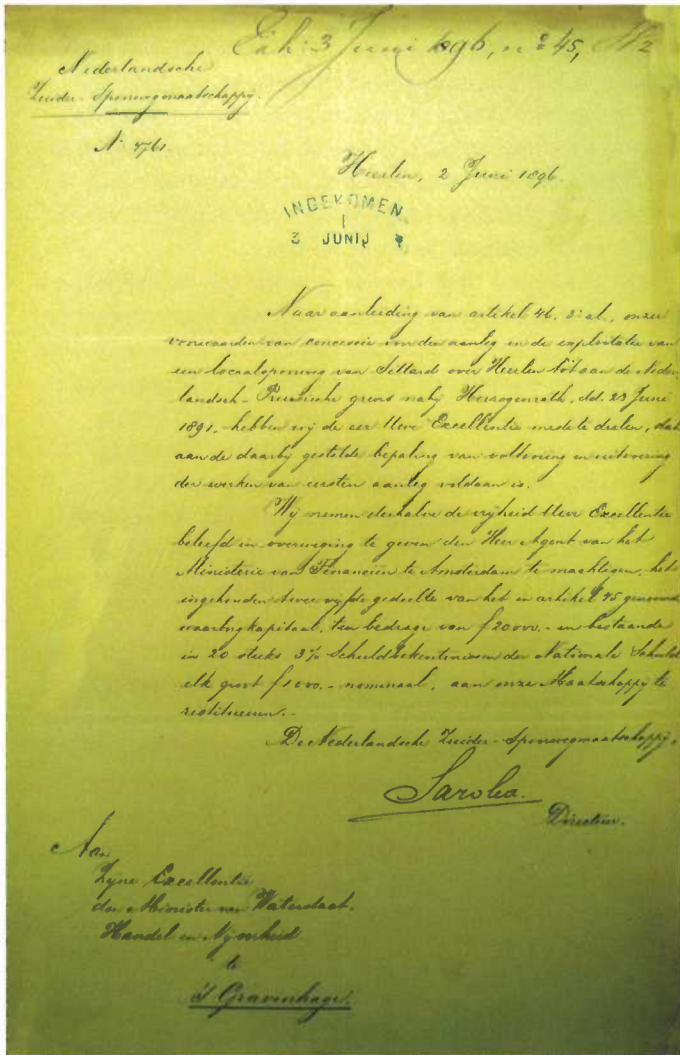 Exh: 3 Juni 1896, nº 45,
Nederlandsche
Zuider-Spoorwegmaatschappij.
Nº 4761.
Heerlen, 2 Juni 1896.
INGEKOMEN
3 JUNIJ
Naar aanleiding van artikel 46, 3e al., onzer
voorwaarden van concessie voor den aanleg en de exploitatie van
een locaalspoorweg van Sittard over Heerlen tot aan de Neder-
landsch-Pruisische grens nabij Herzogenrath, dd. 23 Juni
1891, hebben wij de eer Uwe Excellentie mede te deelen, dat
aan de daarbij gestelde bepaling van voltooiing en uitvoering
der werken van eersten aanleg voldaan is.
Wij nemen derhalve de vrijheid Uwe Excellentie
beleefd in overweging te geven den Heer Agent van het
Ministerie van Financiën te Amsterdam te machtigen, het
ingehouden twee vijfde gedeelte van het in artikel 45 genoemde
waarborgkapitaal, ten bedrage van f 20000.- en bestaande
in 20 stuks 3% Schuldbekentenissen der Nationale Schuld
elk groot f 1000.- nominaal, aan onze Maatschappij te
restitueeren.-
De Nederlandsche Zuider-Spoorwegmaatschappij,
Sarolea.
Directeur.
Aan
Zijne Excellentie
den Minister van Waterstaat,
Handel en Nijverheid
te
's Gravenhage.